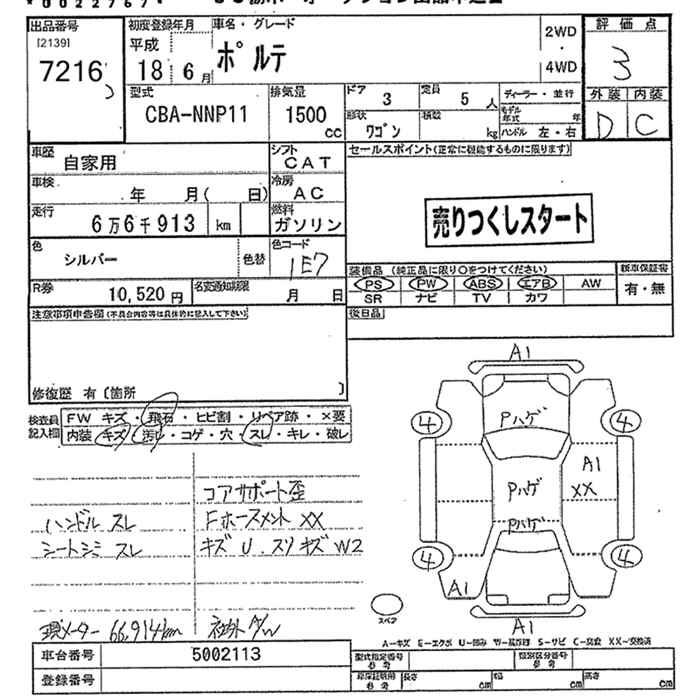 出品番号
[2139]
7216
初度登録年月
平成
18 6月
車名・グレード
ポルテ
2WD
・
4WD
評価点
3
外装 内装
D C
型式
CBA-NNP11
排気量
1500
cc
ドア
3
定員
5 人
形状
ワゴン
積数
kg
ディーラー・並行
モデル年式 年
ハンドル 左・右
車歴
自家用
シフト
CAT
車検
年 月( 日)
冷房
AC
走行
6万6千913 km
燃料
ガソリン
色
シルバー
色替
色コード
1E7
R券
10,520円
名変通知期限
月 日
セールスポイント(正常に機能するものに限ります)
売りつくしスタート
装備品(純正品に限り○をつけてください)
PS PW ABS エアB AW
SR ナビ TV カワ
新車保証書
有・無
後日品
注意事項申告欄(不具合内容等は具体的に記入して下さい)
修復歴 有〔箇所 〕
検査員記入欄
FW キズ・飛石・ヒビ割・リペア跡・×要
内装 キズ・汚れ・コゲ・穴・スレ・キレ・破レ
コアサポート歪
ハンドル スレ
Fホースメント XX
シートシミ スレ
キズU.スリキズ W2
現メーター 66,914km 社外A/W
A1
4
Pハゲ
4
A1
XX
Pハゲ
Pハゲ
4
4
A1
スペア
A1
A-キズ E-エクボ U-凹み W-波修理 S-サビ C-腐食 XX-交換済
車台番号
5002113
登録番号
型式指定番号
参考
類別区分番号
参考
車保証期間
参考
長さ cm
幅 cm
高さ cm